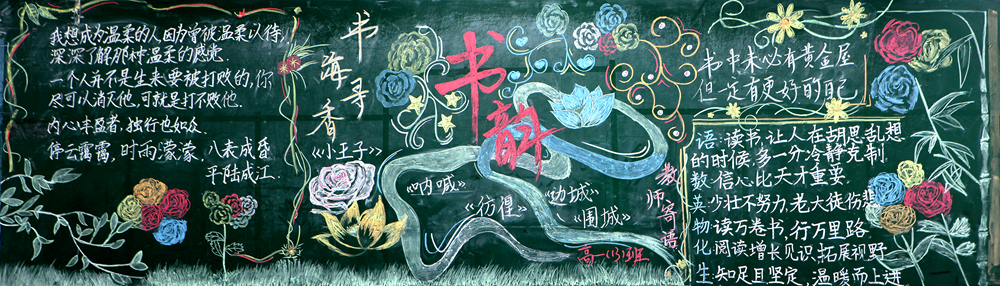 我想成为温柔的人因为曾被温柔以待,
深深了解那种温柔的感觉.
一个人并不是生来要被打败的,你
尽可以消灭他,可就是打不败他.
内心丰盈者,独行也如众.
停云霭霭,时雨濛濛.八表成昏
平陆成江.
书海寻香
《小王子》
书韵
《呐喊》
《彷徨》
《边城》
《围城》
高一(13)班
教师寄语
书中未必有黄金屋
但一定有更好的自己
语:读书,让人在胡思乱想
的时候,多一分冷静克制.
数:信心比天才重要.
英:少壮不努力,老大徒伤悲
物:读万卷书,行万里路.
化:阅读增长见识,拓展视野
生:知足且坚定,温暖而上进.